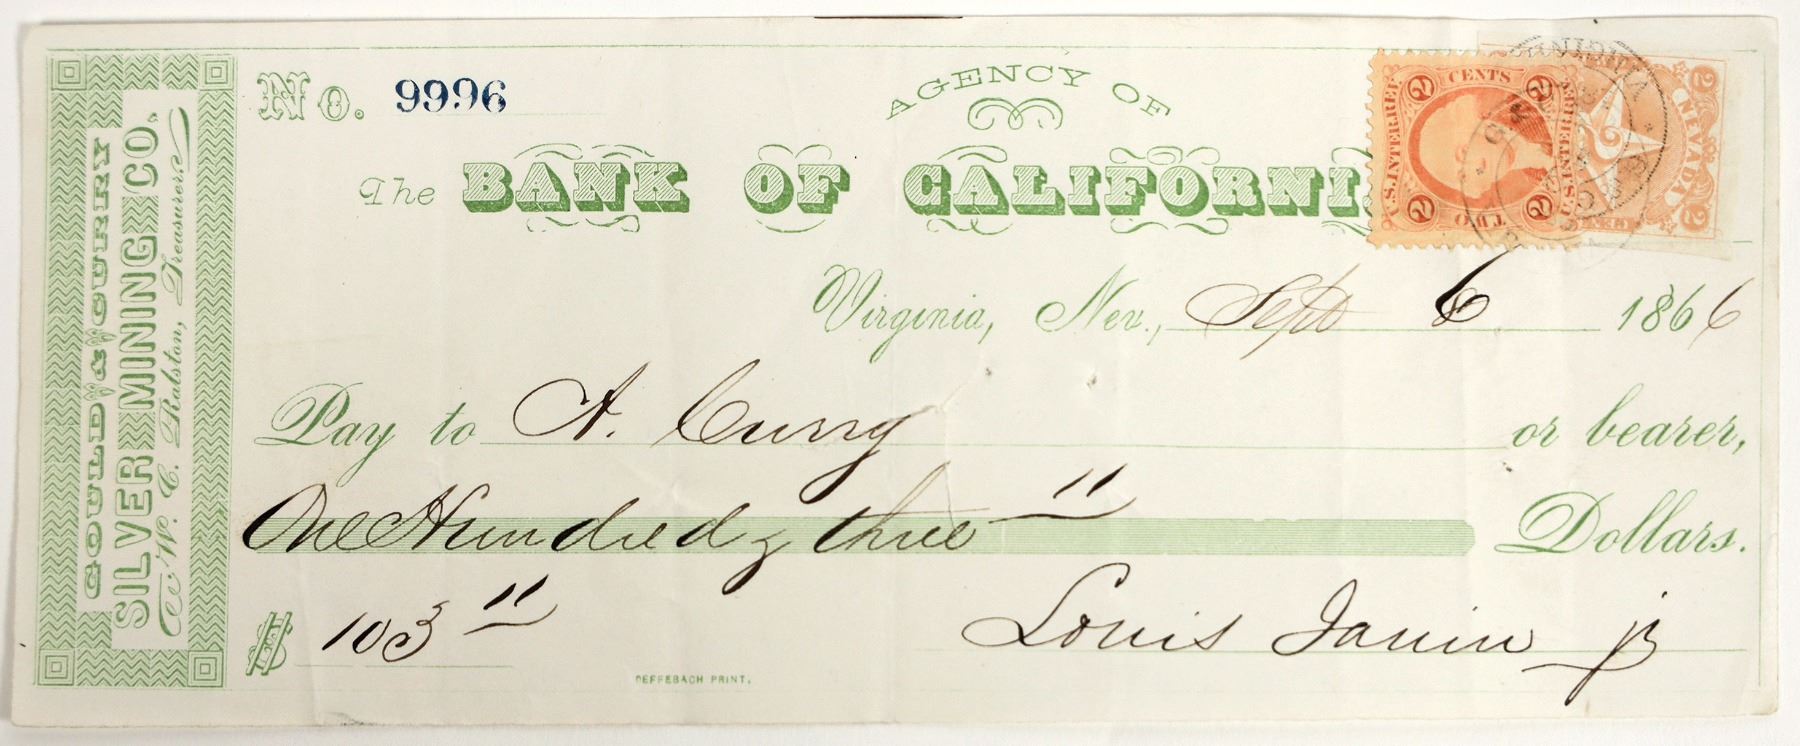 GOULD & CURRY
SILVER MINING CO.
W. C. Ralston, Treasurer.
No. 9996
AGENCY OF
The BANK OF CALIFORNI
2 CENTS 2
U.S. INTER. REV.
U.S. INTER. REV.
2 2
2 NEVADA 2
VIRGINIA
Virginia, Nev., Sept 6 1866
Pay to A. Curry or bearer,
One Hundred & three — " Dollars.
$ 103 "
Louis Janin jr
DEFFEBACH PRINT.